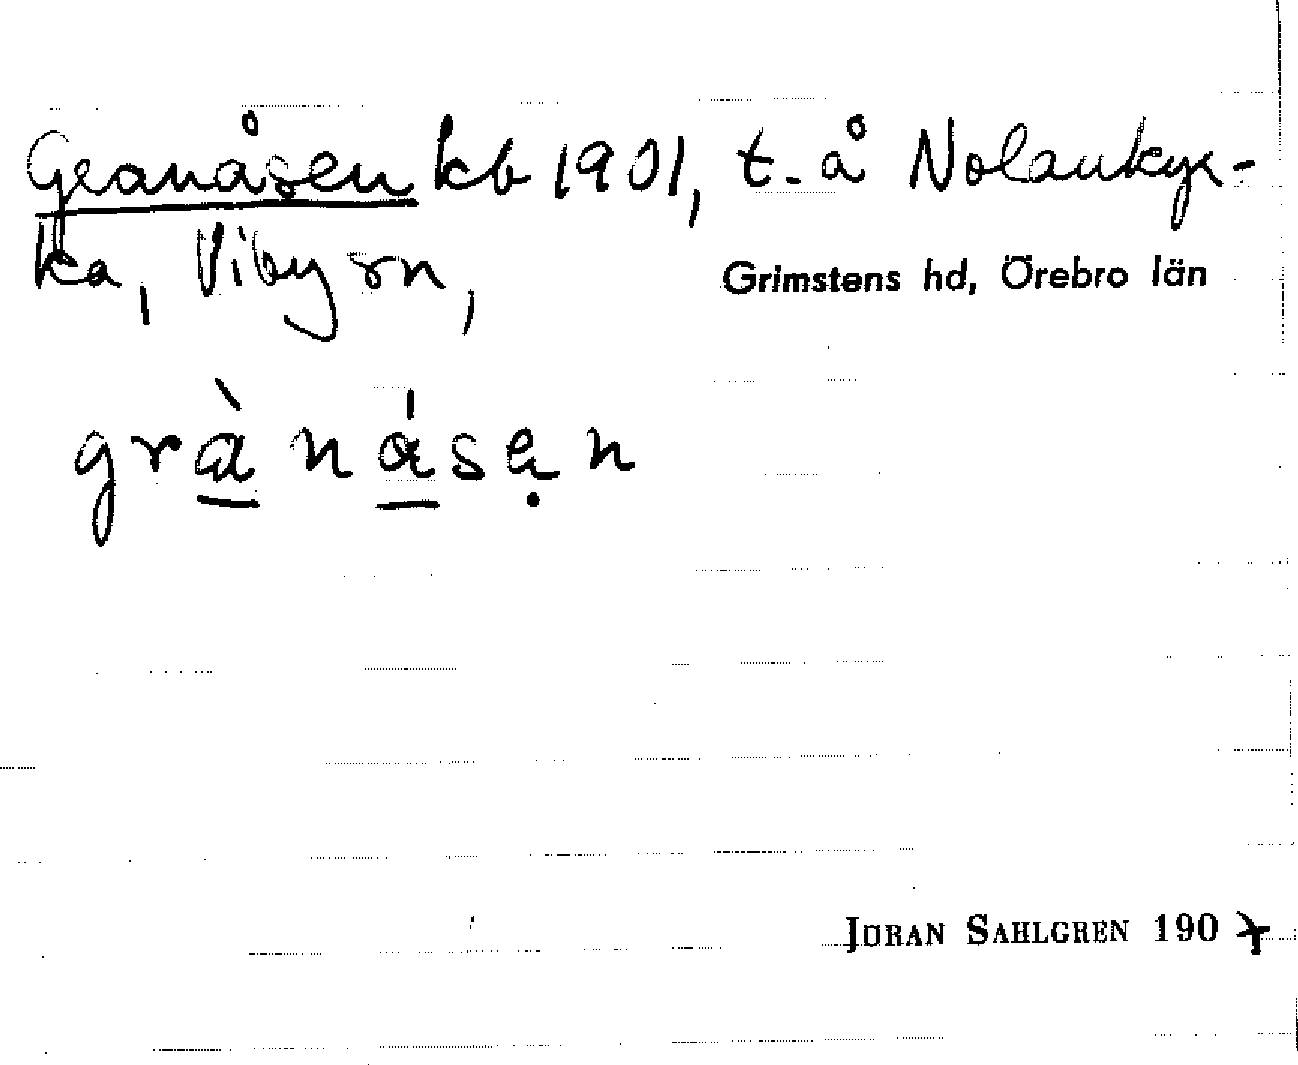 Granåsen kb 1901, t. å Nolankyr-
ka, Viby sn,
Grimstens hd, Örebro län
grànásen
JÖRAN SAHLGREN 1907